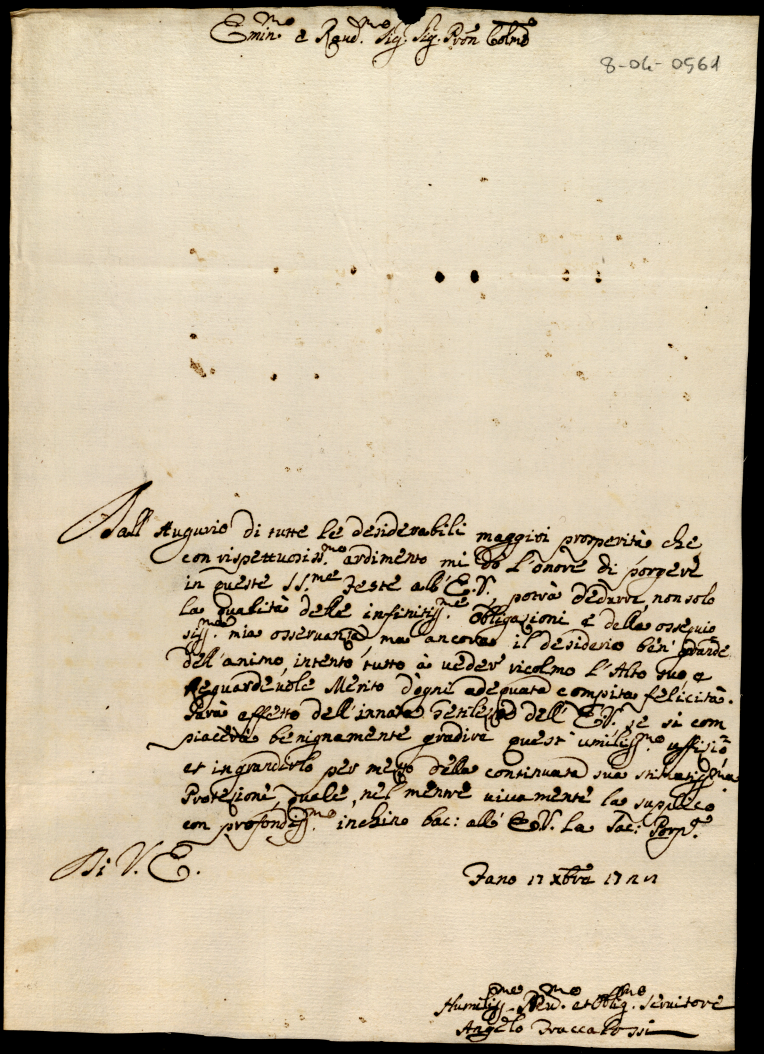 Emin.mo e Reud.mo Sig.r Sig. Pron Colmo
8-04-0561
Dall Augurio di tutte le desiderabili maggiori prosperità che
con rispettuosiss.mo ardimento mi dò l'onore di porgere
in queste SS.me Feste all'E.V., potrà dedurre, non solo
la qualità delle infinitiss.me obligazioni e della ossequio
siss.ma mia osservanza, ma ancora il desiderio ben' grande
dell'animo, intento tutto à ueder ricolmo l'Alto suo e
Reguardeuole Merito d'ogni adequata compita felicità.
Sarà effetto dell'innata Gentilezza dell'E.V. se si com
piacerà benignamente gradire quest' umiliss.mo uffisio
et ingrandirlo per mezzo della continuata sua stimatiss.ma
Protezione, quale, nel mentre uiuamente la supplico
con profondiss.mo inchino bac: all'E.V. la Sac: Porp.a
Di V. E.
Fano 17 Xbre
Humiliss.mo Deu.mo et Oblig.mo Seruitore
Angelo